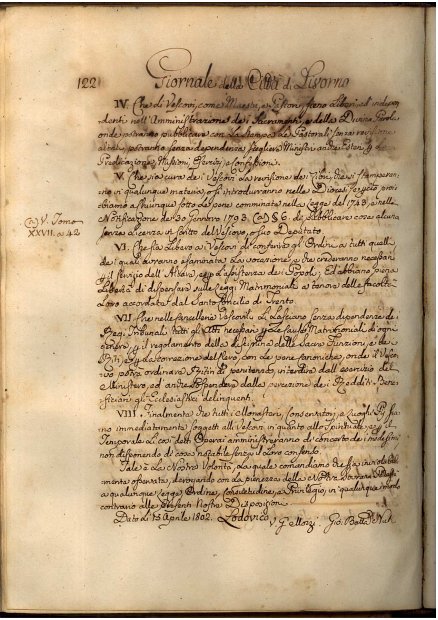 122 Giornale della Città di Livorno
IV. Che i Vescovi, come Maestri, e Pastori, sieno Liberi, ed indipen-
denti nell'Amministrazione de i Sacramenti, e della Divina Parola,
onde potranno pubblicare con La Stampa le Pastorali senza revisione
alcuna, potranno senza dipendenza scegliere Ministri anche Esteri p. le
Predicazioni, Missioni, Esercizi, e Confessioni.
V. Che sia cura de i Vescovi La revisione dei Libri, che si stamperan-
no in qualunque materia, o s'introdurranno nelle Diocesi, perciò proi-
biamo a chiunque sotto Le pene comminate nella Legge del 1743, e nella
Notificazione de 30 Gennaro 1793. (a) § 6. di pubblicare cosa alcuna
senza Licenza in scritto del Vescovo, o suo Deputato.
(a) V. Tomo
XXVII. a 42
VI. Che sia Libero a i Vescovi di conferire gli Ordini a tutti quelli,
de i quali avranno esaminata La vocazione, e che crederanno necessari
p. il servizio dell'Altare, e p. L'assistenza de i Popoli, Ed abbiano piena
Libertà di dispensare sulle Leggi Matrimoniali a tenore delle facoltà
Loro accordate dal Santo Concilio di Trento.
VII. Che nelle Cancellerie Vescovili si facciano senza dipendenza de i
Regi Tribunali tutti gli Atti necessari p. Le Cause Matrimoniali di ogni
genere, p. il regolamento della disciplina delle Sacre Funzioni, e de i
Riti, e p. La correzione del Clero con Le pene canoniche, onde il Vesco-
vo potrà ordinare Ritiri di penitenza, interdire dall'esercizio del
Ministero, ed anche sospendere dalla percezione de i Redditi Bene-
ficiari gli Ecclesiastici delinquenti.
VIII. Finalmente che tutti i Monasteri, Conservatori, e Luoghi Pii sia-
no immediatamente soggetti a i Vescovi in quanto allo Spirituale, e p. il
Temporale Li così detti Operai amministreranno di concerto de i medesimi
non disponendo di cosa notabile senza il Loro consenso.
Tale è La Nostra Volontà, La quale comandiamo che sia inviolabil-
mente osservata, derogando con La pienezza della Nostra Sovrana Potestà
a qualunque Legge, Ordine, Consuetudine, o Privilegio, in qualunque modo
contrario alle presenti Nostre Disposizioni.
Dato Li 15 Aprile 1802. Lodovico.